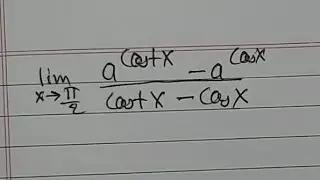 lim x→π/2 (a^(cotx) - a^(cosx)) / (cotx - cosx)